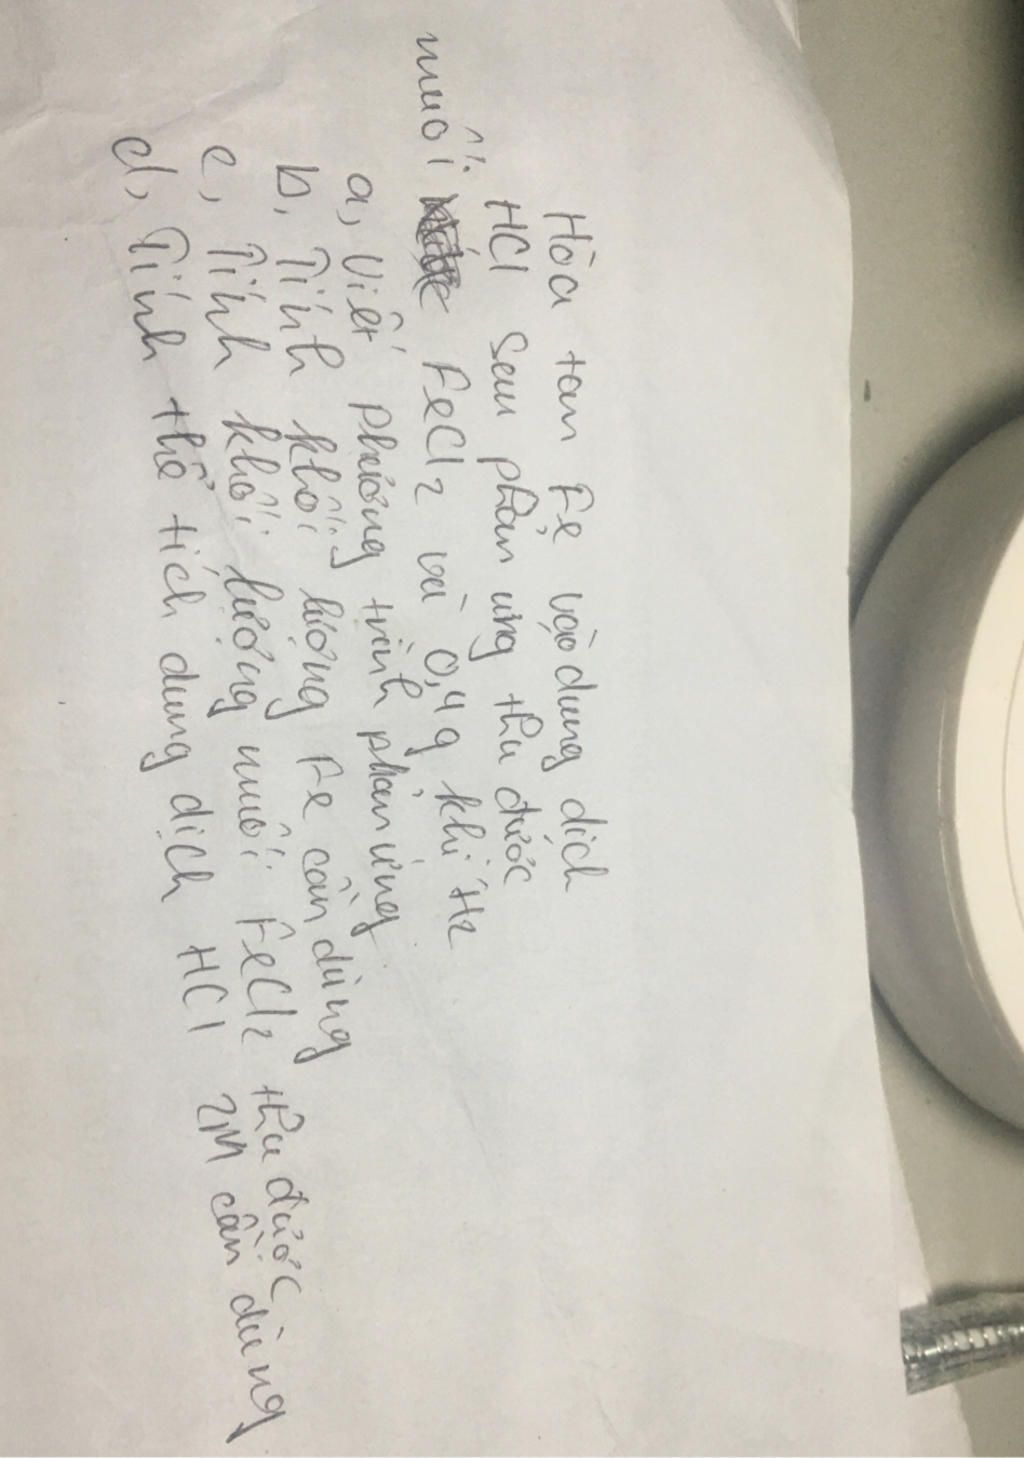 Hòa tan Fe vào dung dịch
HCl sau phản ứng thu được
muối FeCl2 và 0,4g khí H2
a, Viết phương trình phản ứng
b, Tính khối lượng Fe cần dùng
c, Tính khối lượng muối FeCl2 thu được
d, Tính thể tích dung dịch HCl 2M cần dùng